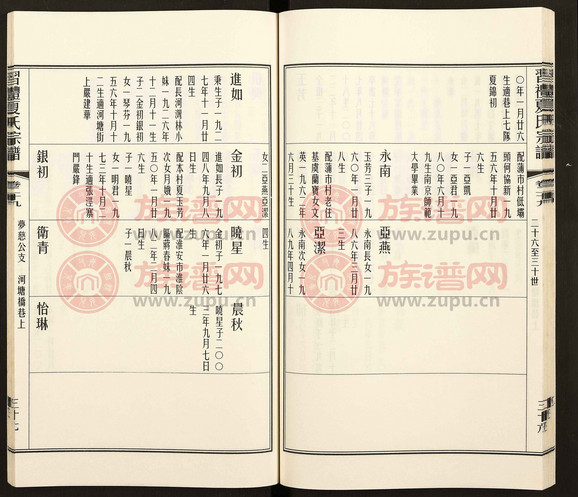 〇年一月廿六
生適巷上七隊
夏錦初
永南
配蒲市村低墈
頭何協新一九
五六年十月廿
六生
子一亞凱
女一亞君一九
八〇年六月十
九生南京師範
大學畢業
亞燕
玉芳三子一九
配蒲市村老任
基虞蘭寶女文
英一九六二年
六月三十生
亞潔
永南長女一九
八六年二月廿
三生
永南次女一九
八九年四月十
二十六至三十世
進如
秉生子一九二
七年十一月廿
四生
配長河灣林小
妹一九二六年
十二月十一生
子二金初銀初
女一琴芬一九
五六年十月十
二生適河塘街
上嚴建華
金初
女二亞燕亞潔
進如長子一九
四八年九月八
日生
配本村夏玉芳
五〇年一月廿
次女月娥一九
六生
子一曉星
女一明君一九
七三年十月二
十生適張涇寨
門嚴鋒
曉星
四生
金初子一九七
六年一月廿六
日生
配淮安市淮陰
區蔣春妹一九
八二年二月四
日生
子一晨秋
晨秋
曉星子二〇〇
三年九月七日
生
銀初
衛青
怡琳
夢慈公支 河塘橋巷上
習禮夏氏宗譜
卷九
三十七
族谱网
www.zupu.cn
族谱网
www.zupu.cn
族谱网
www.zupu.cn
族谱网
www.zupu.cn